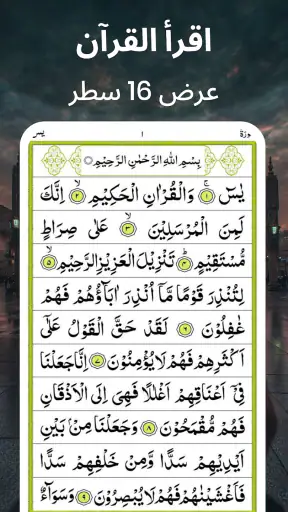 اقرأ القرآن
عرض 16 سطر
يس ١ سورة
بِسْمِ اللهِ الرَّحْمٰنِ الرَّحِيْمِ
يٰسٓ ﴿١﴾ وَالْقُرْاٰنِ الْحَكِيْمِ ﴿٢﴾ اِنَّكَ
لَمِنَ الْمُرْسَلِيْنَ ﴿٣﴾ عَلٰى صِرَاطٍ
مُّسْتَقِيْمٍ ﴿٤﴾ تَنْزِيْلَ الْعَزِيْزِ الرَّحِيْمِ ﴿٥﴾
لِتُنْذِرَ قَوْمًا مَّاۤ اُنْذِرَ اٰبَآؤُهُمْ فَهُمْ
غٰفِلُوْنَ ﴿٦﴾ لَقَدْ حَقَّ الْقَوْلُ عَلٰۤى
اَكْثَرِهِمْ فَهُمْ لَا يُؤْمِنُوْنَ ﴿٧﴾ اِنَّا جَعَلْنَا
فِيْۤ اَعْنَاقِهِمْ اَغْلٰلًا فَهِىَ اِلَى الْاَذْقَانِ
فَهُمْ مُّقْمَحُوْنَ ﴿٨﴾ وَجَعَلْنَا مِنْۢ بَيْنِ
اَيْدِيْهِمْ سَدًّا وَّمِنْ خَلْفِهِمْ سَدًّا
فَاَغْشَيْنٰهُمْ فَهُمْ لَا يُبْصِرُوْنَ ﴿٩﴾ وَسَوَآءٌ